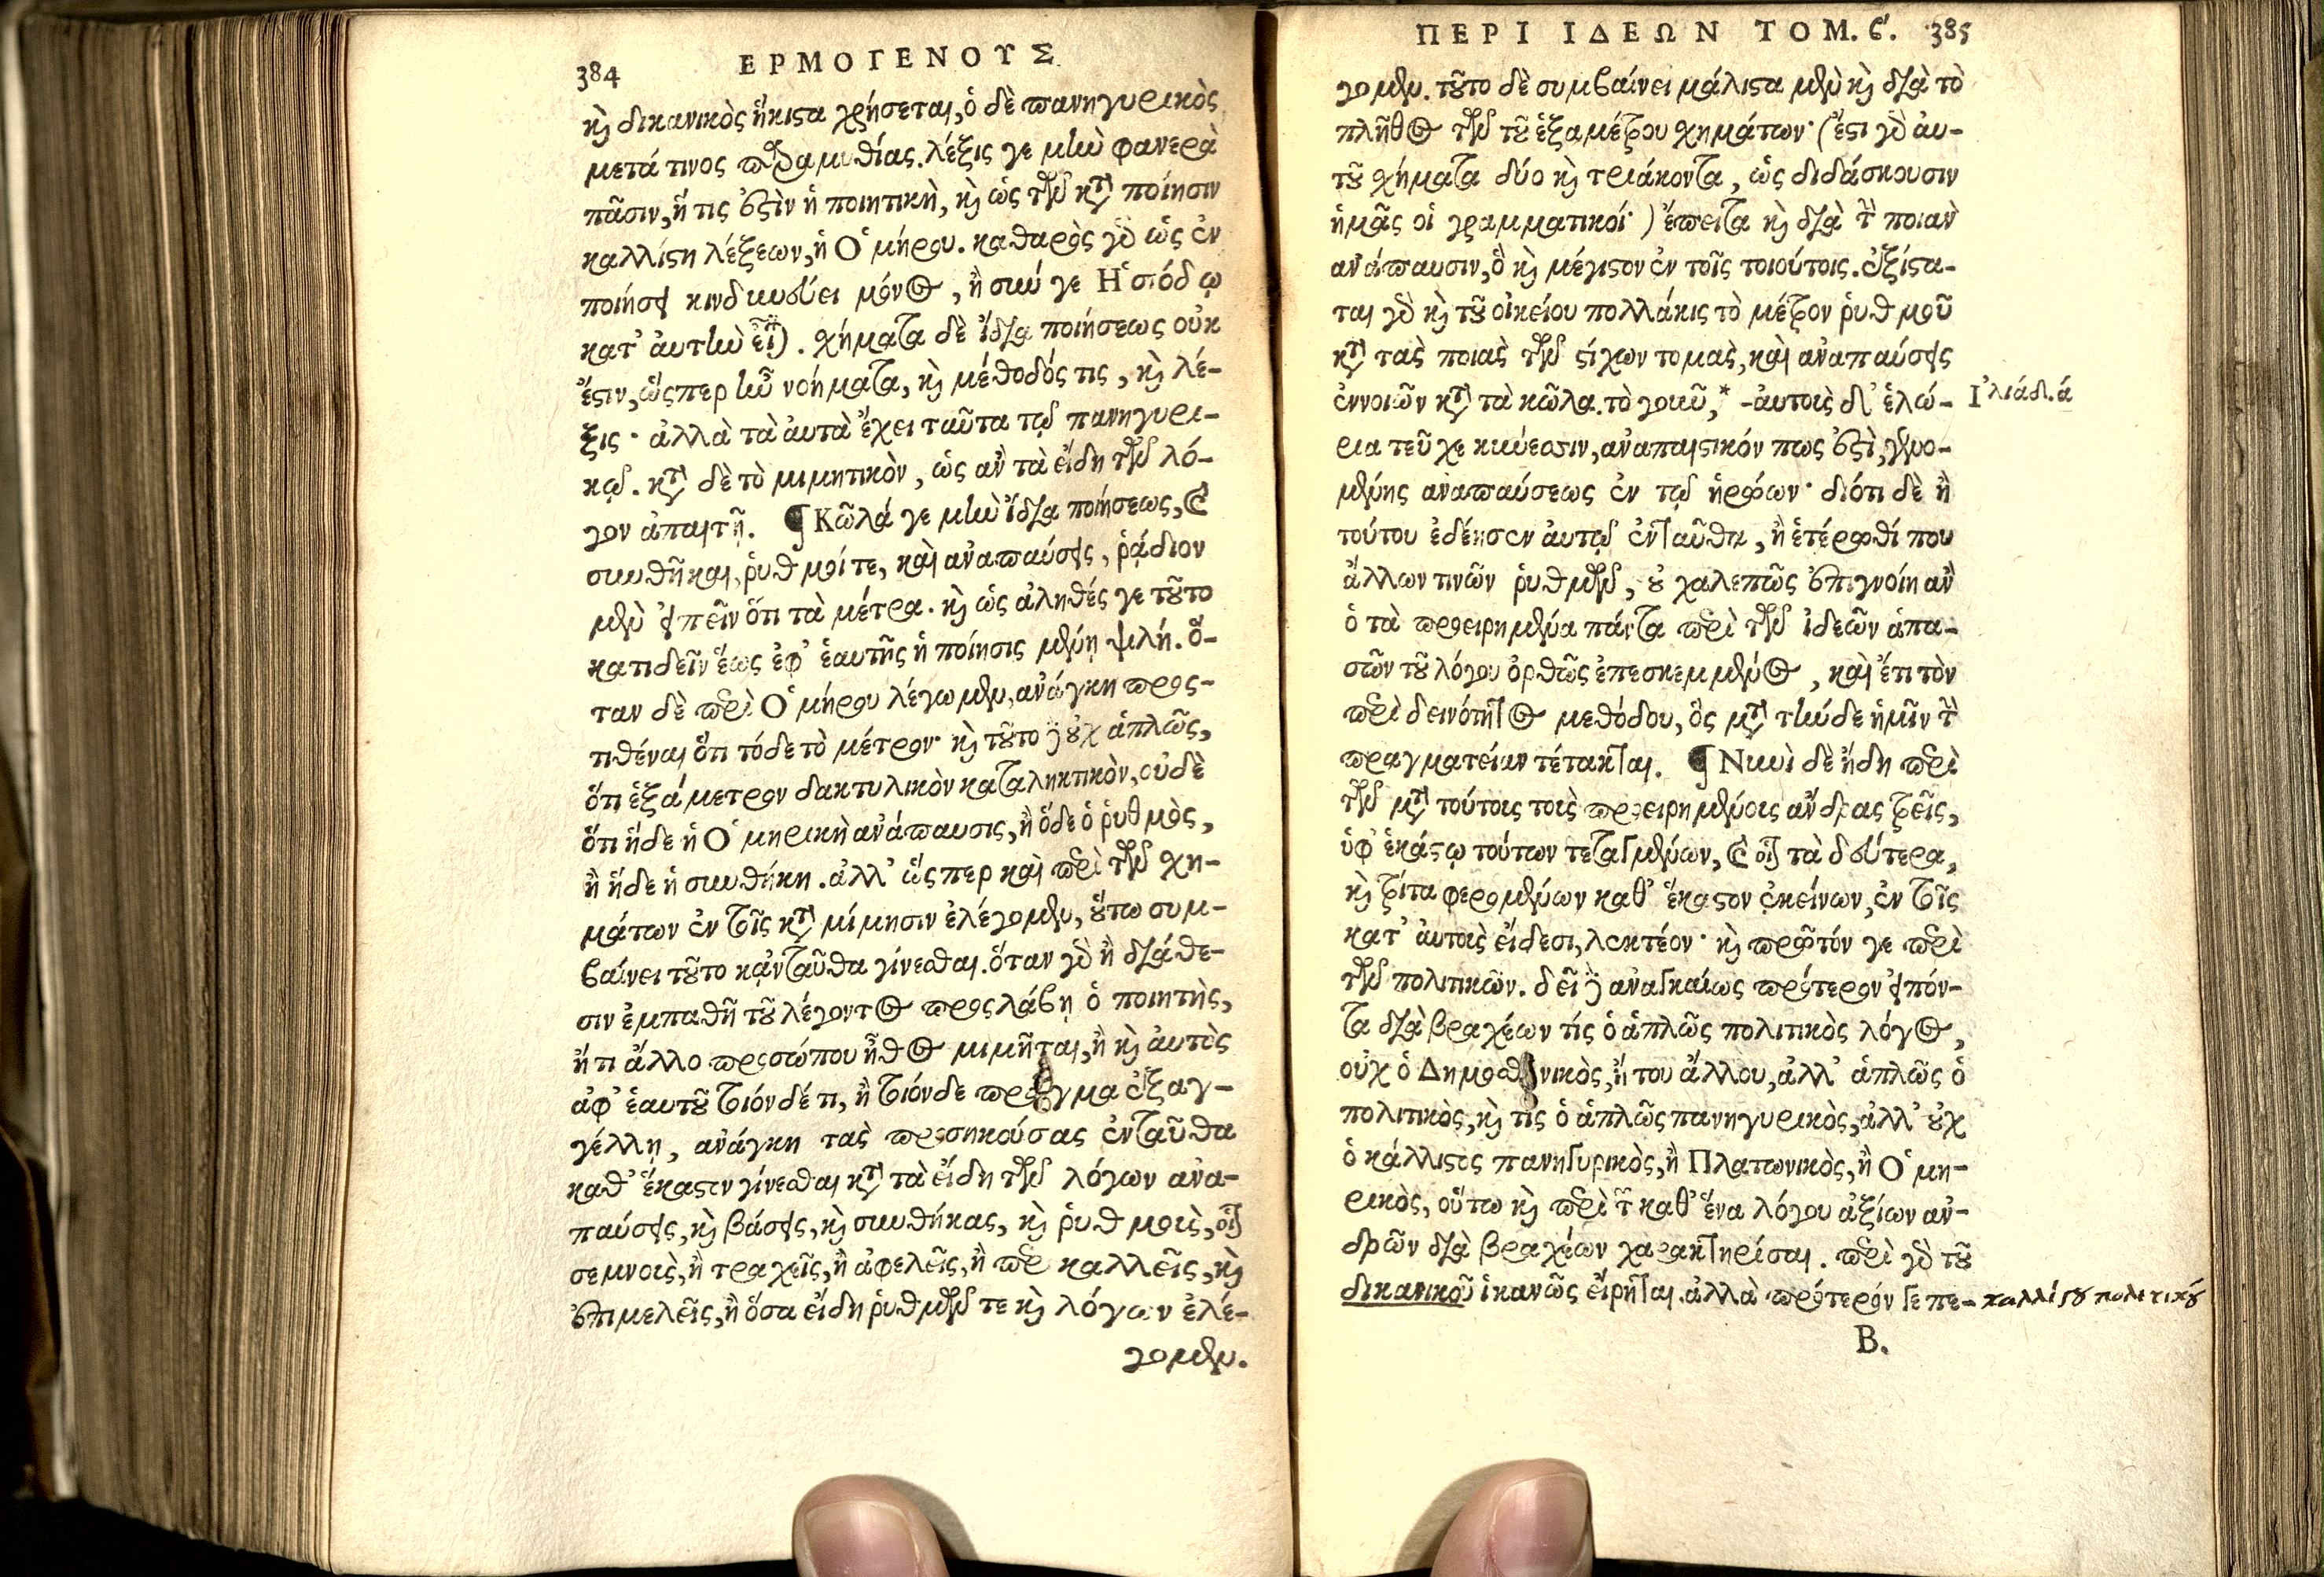 384 ΕΡΜΟΓΕΝΟΥΣ
καὶ δικανικὸς ἥκιστα χρήσεται, ὁ δὲ πανηγυρικὸς
μετά τινος παραμυθίας. λέξις γε μὴν φανερὰ
πᾶσιν, ἥ τις ἐστὶν ἡ ποιητικὴ, καὶ ὡς τῶν κατὰ ποίησιν
καλλίστη λέξεων, ἡ Ὁμήρου. καθαρὸς γὰρ ὡς ἐν
ποιήσει κινδυνεύει μόνος, ἢ σύν γε Ἡσιόδῳ
κατ' ἀυτὴν εἶναι. χήματα δὲ ἴδια ποιήσεως οὐκ
ἔστιν, ὥσπερ ἦν νοήματα, καὶ μέθοδός τις, καὶ λέ-
ξις· ἀλλὰ τὰ ἀυτὰ ἔχει ταῦτα τῷ πανηγυρι-
κῷ. κατὰ δὲ τὸ μιμητικὸν, ὡς ἂν τὰ εἴδη τῶν λό-
γον ἀπαιτῇ. ¶ Κῶλά γε μὴν ἴδια ποιήσεως, καὶ
συνθῆκαι, ῥυθμοί τε, καὶ ἀναπαύσεις, ῥᾴδιον
μὲν εἰπεῖν ὅτι τὰ μέτρα. καὶ ὡς ἀληθές γε τοῦτο
κατιδεῖν ἕως ἐφ' ἑαυτῆς ἡ ποίησις μένῃ ψιλή. ὅ-
ταν δὲ περὶ Ὁμήρου λέγωμεν, ἀνάγκη προς-
τιθέναι ὅτι τόδε τὸ μέτρον· καὶ τοῦτο δὲ οὐχ ἁπλῶς,
ὅτι ἑξάμετρον δακτυλικὸν καταληκτικὸν, οὐδὲ
ὅτι ἥδε ἡ Ὁμηρικὴ ἀνάπαυσις, ἢ ὅδε ὁ ῥυθμὸς,
ἢ ἥδε ἡ συνθήκη. ἀλλ' ὥσπερ καὶ περὶ τῶν χη-
μάτων ἐν τοῖς κατὰ μίμησιν ἐλέγομεν, οὕτω συμ-
βαίνει τοῦτο κἀνταῦθα γίνεσθαι. ὅταν γὰρ ἢ διάθε-
σιν ἐμπαθῆ τοῦ λέγοντος προςλάβῃ ὁ ποιητὴς,
ἤ τι ἄλλο προσώπου ἦθος μιμῆται, ἢ καὶ ἀυτὸς
ἀφ' ἑαυτοῦ τοιόνδέ τι, ἢ τοιόνδε πρᾶγμα ἐξαγ-
γέλλῃ, ἀνάγκη τὰς προσηκούσας ἐνταῦθα
καθ' ἕκαστον γίνεσθαι κατὰ τὰ εἴδη τῶν λόγων ἀνα-
παύσεις, καὶ βάσεις, καὶ συνθήκας, καὶ ῥυθμοὺς, οἷον
σεμνοὺς, ἢ τραχεῖς, ἢ ἀφελεῖς, ἢ περικαλλεῖς, καὶ
ἐπιμελεῖς, ἢ ὅσα εἴδη ῥυθμῶν τε καὶ λόγων ἐλέ-
γομεν.
ΠΕΡΙ ΙΔΕΩΝ ΤΟΜ. ϛ'. 385
γομεν. τοῦτο δὲ συμβαίνει μάλιστα μὲν καὶ διὰ τὸ
πλῆθος τῶν τοῦ ἑξαμέτρου χημάτων· (ἔστι γὰρ ἀυ-
τοῦ χήματα δύο καὶ τριάκοντα, ὡς διδάσκουσιν
ἡμᾶς οἱ γραμματικοί·) ἔπειτα καὶ διὰ τὴν ποιὰν
ἀνάπαυσιν, ὃ καὶ μέγιστον ἐν τοῖς τοιούτοις. ἐξίστα-
ται γὰρ καὶ τοῦ οἰκείου πολλάκις τὸ μέτρον ῥυθμοῦ
κατὰ τὰς ποιὰς τῶν στίχων τομὰς, καὶ ἀναπαύσεις
ἐννοιῶν κατὰ τὰ κῶλα. τὸ γοῦν, * -ἀυτοὺς δ' ἑλώ- Ἰλιάδ. ά
ρια τεῦχε κύνεσσιν, ἀναπαιστικόν πως ἐστὶ, γενο-
μένης ἀναπαύσεως ἐν τῷ ἡρῴων· διότι δὲ ἢ
τούτου ἐδέησεν ἀυτῷ ἐνταῦθα, ἢ ἑτέρωθί που
ἄλλων τινῶν ῥυθμῶν, οὐ χαλεπῶς ἐπιγνοίη ἂν
ὁ τὰ προειρημένα πάντα περὶ τῶν ἰδεῶν ἁπα-
σῶν τοῦ λόγου ὀρθῶς ἐπεσκεμμένος, καὶ ἔτι τὸν
περὶ δεινότητος μεθόδου, ὃς μετὰ τήνδε ἡμῖν τὴν
πραγματείαν τέτακται. ¶ Νυνὶ δὲ ἤδη περὶ
τῶν μετὰ τούτους τοὺς προειρημένους ἄνδρας τρεῖς,
ὑφ' ἑκάστῳ τούτων τεταγμένων, καὶ οἷον τὰ δεύτερα,
καὶ τρίτα φερομένων καθ' ἕκαστον ἐκείνων, ἐν τοῖς
κατ' ἀυτοὺς εἴδεσι, λεκτέον· καὶ πρῶτόν γε περὶ
τῶν πολιτικῶν. δεῖ δὲ ἀναγκαίως πρότερον εἰπόν-
τα διὰ βραχέων τίς ὁ ἁπλῶς πολιτικὸς λόγος,
οὐχ ὁ Δημοσθενικὸς, ἤ του ἄλλου, ἀλλ' ἁπλῶς ὁ
πολιτικὸς, καὶ τίς ὁ ἁπλῶς πανηγυρικὸς, ἀλλ' οὐχ
ὁ κάλλιστος πανηγυρικὸς, ἢ Πλατωνικὸς, ἢ Ὁμη-
ρικὸς, οὕτω καὶ περὶ τῶν καθ' ἕνα λόγου ἀξίων ἀν-
δρῶν διὰ βραχέων χαρακτηρίσαι. περὶ γὰρ τοῦ
δικανικοῦ ἱκανῶς εἴρηται. ἀλλὰ πρότερόν γε πε- καλλίστου πολιτικοῦ
Β.